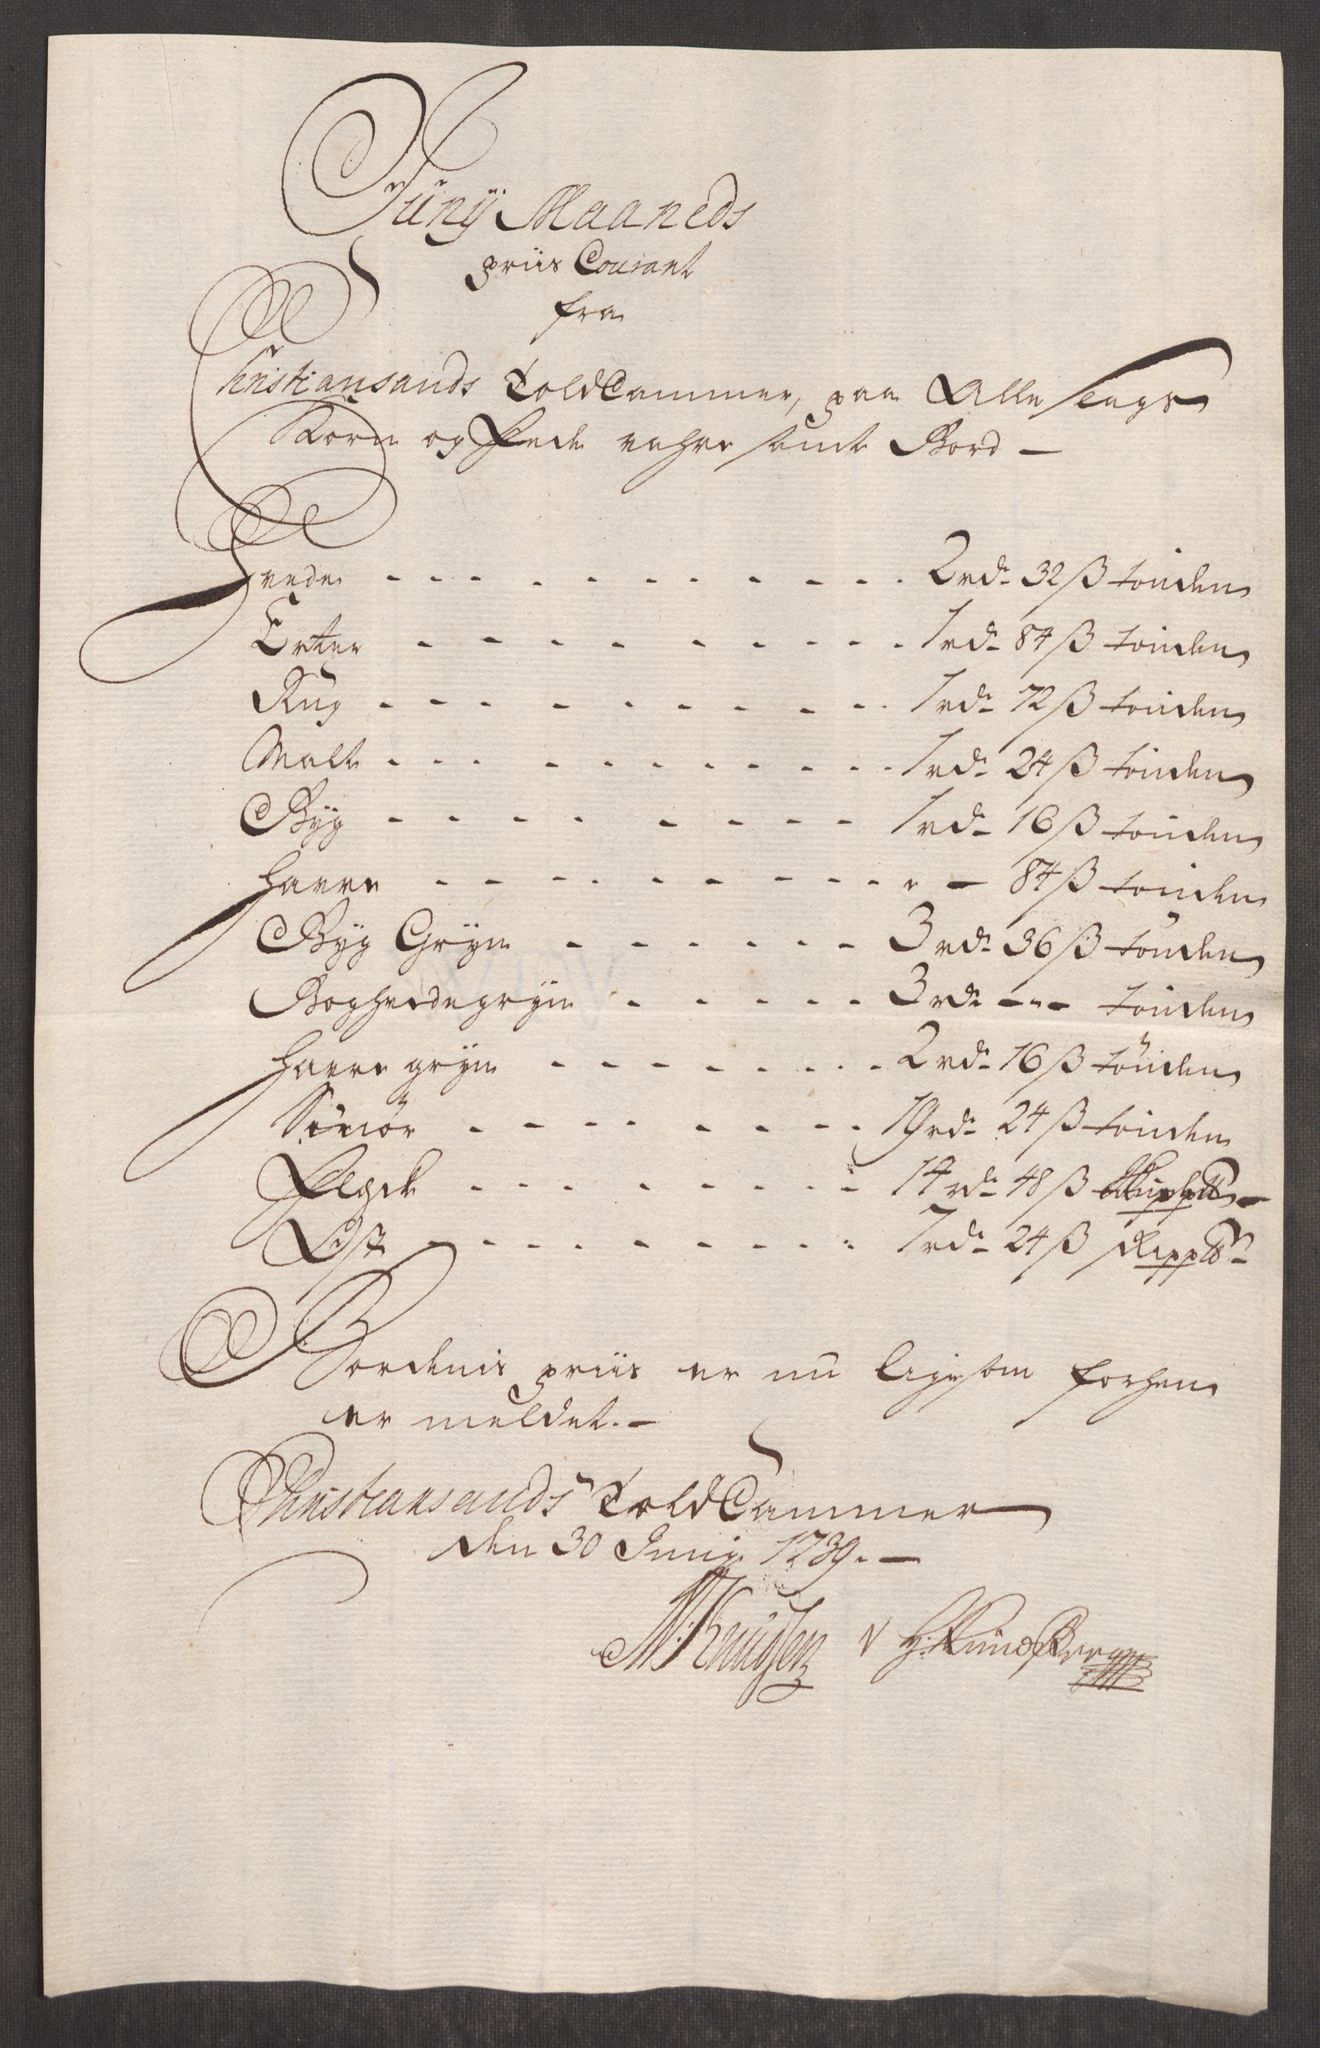 Junÿ Maaneds
priis Courant
fra
Christiansands ToldCammer, paa Alle slags
Korn og Fede vahre samt Bord —
Hvede - - - - - - - - - - 2 rd. 32 ß tönden
Erter - - - - - - - - - - 1 rd. 84 ß tönden
Rug - - - - - - - - - - 1 rd. 72 ß tönden
Malt - - - - - - - - - - 1 rd. 24 ß tönden
Byg - - - - - - - - - 1 rd. 16 ß tönden
Havre - - - - - - - - - - „ — 84 ß tönden
Byg Gryn - - - - - - 3 rd. 36 ß tönden
Boghvedegryn - - - - - 3 rd. - - - tönden
Havre gryn - - - - - - - - 2 rd. 16 ß tönden
Smör - - - - - - - - 19 rd. 24 ß tönden
Flesk - - - - - - - - 14 rd. 48 ß
Ost - - - - - - - - 7 rd. 24 ß
Bordenis priis er nu ligesom forhen
er meldet. —
Christiansands ToldCammer
den 30 Junij 1739. —
Knudsen